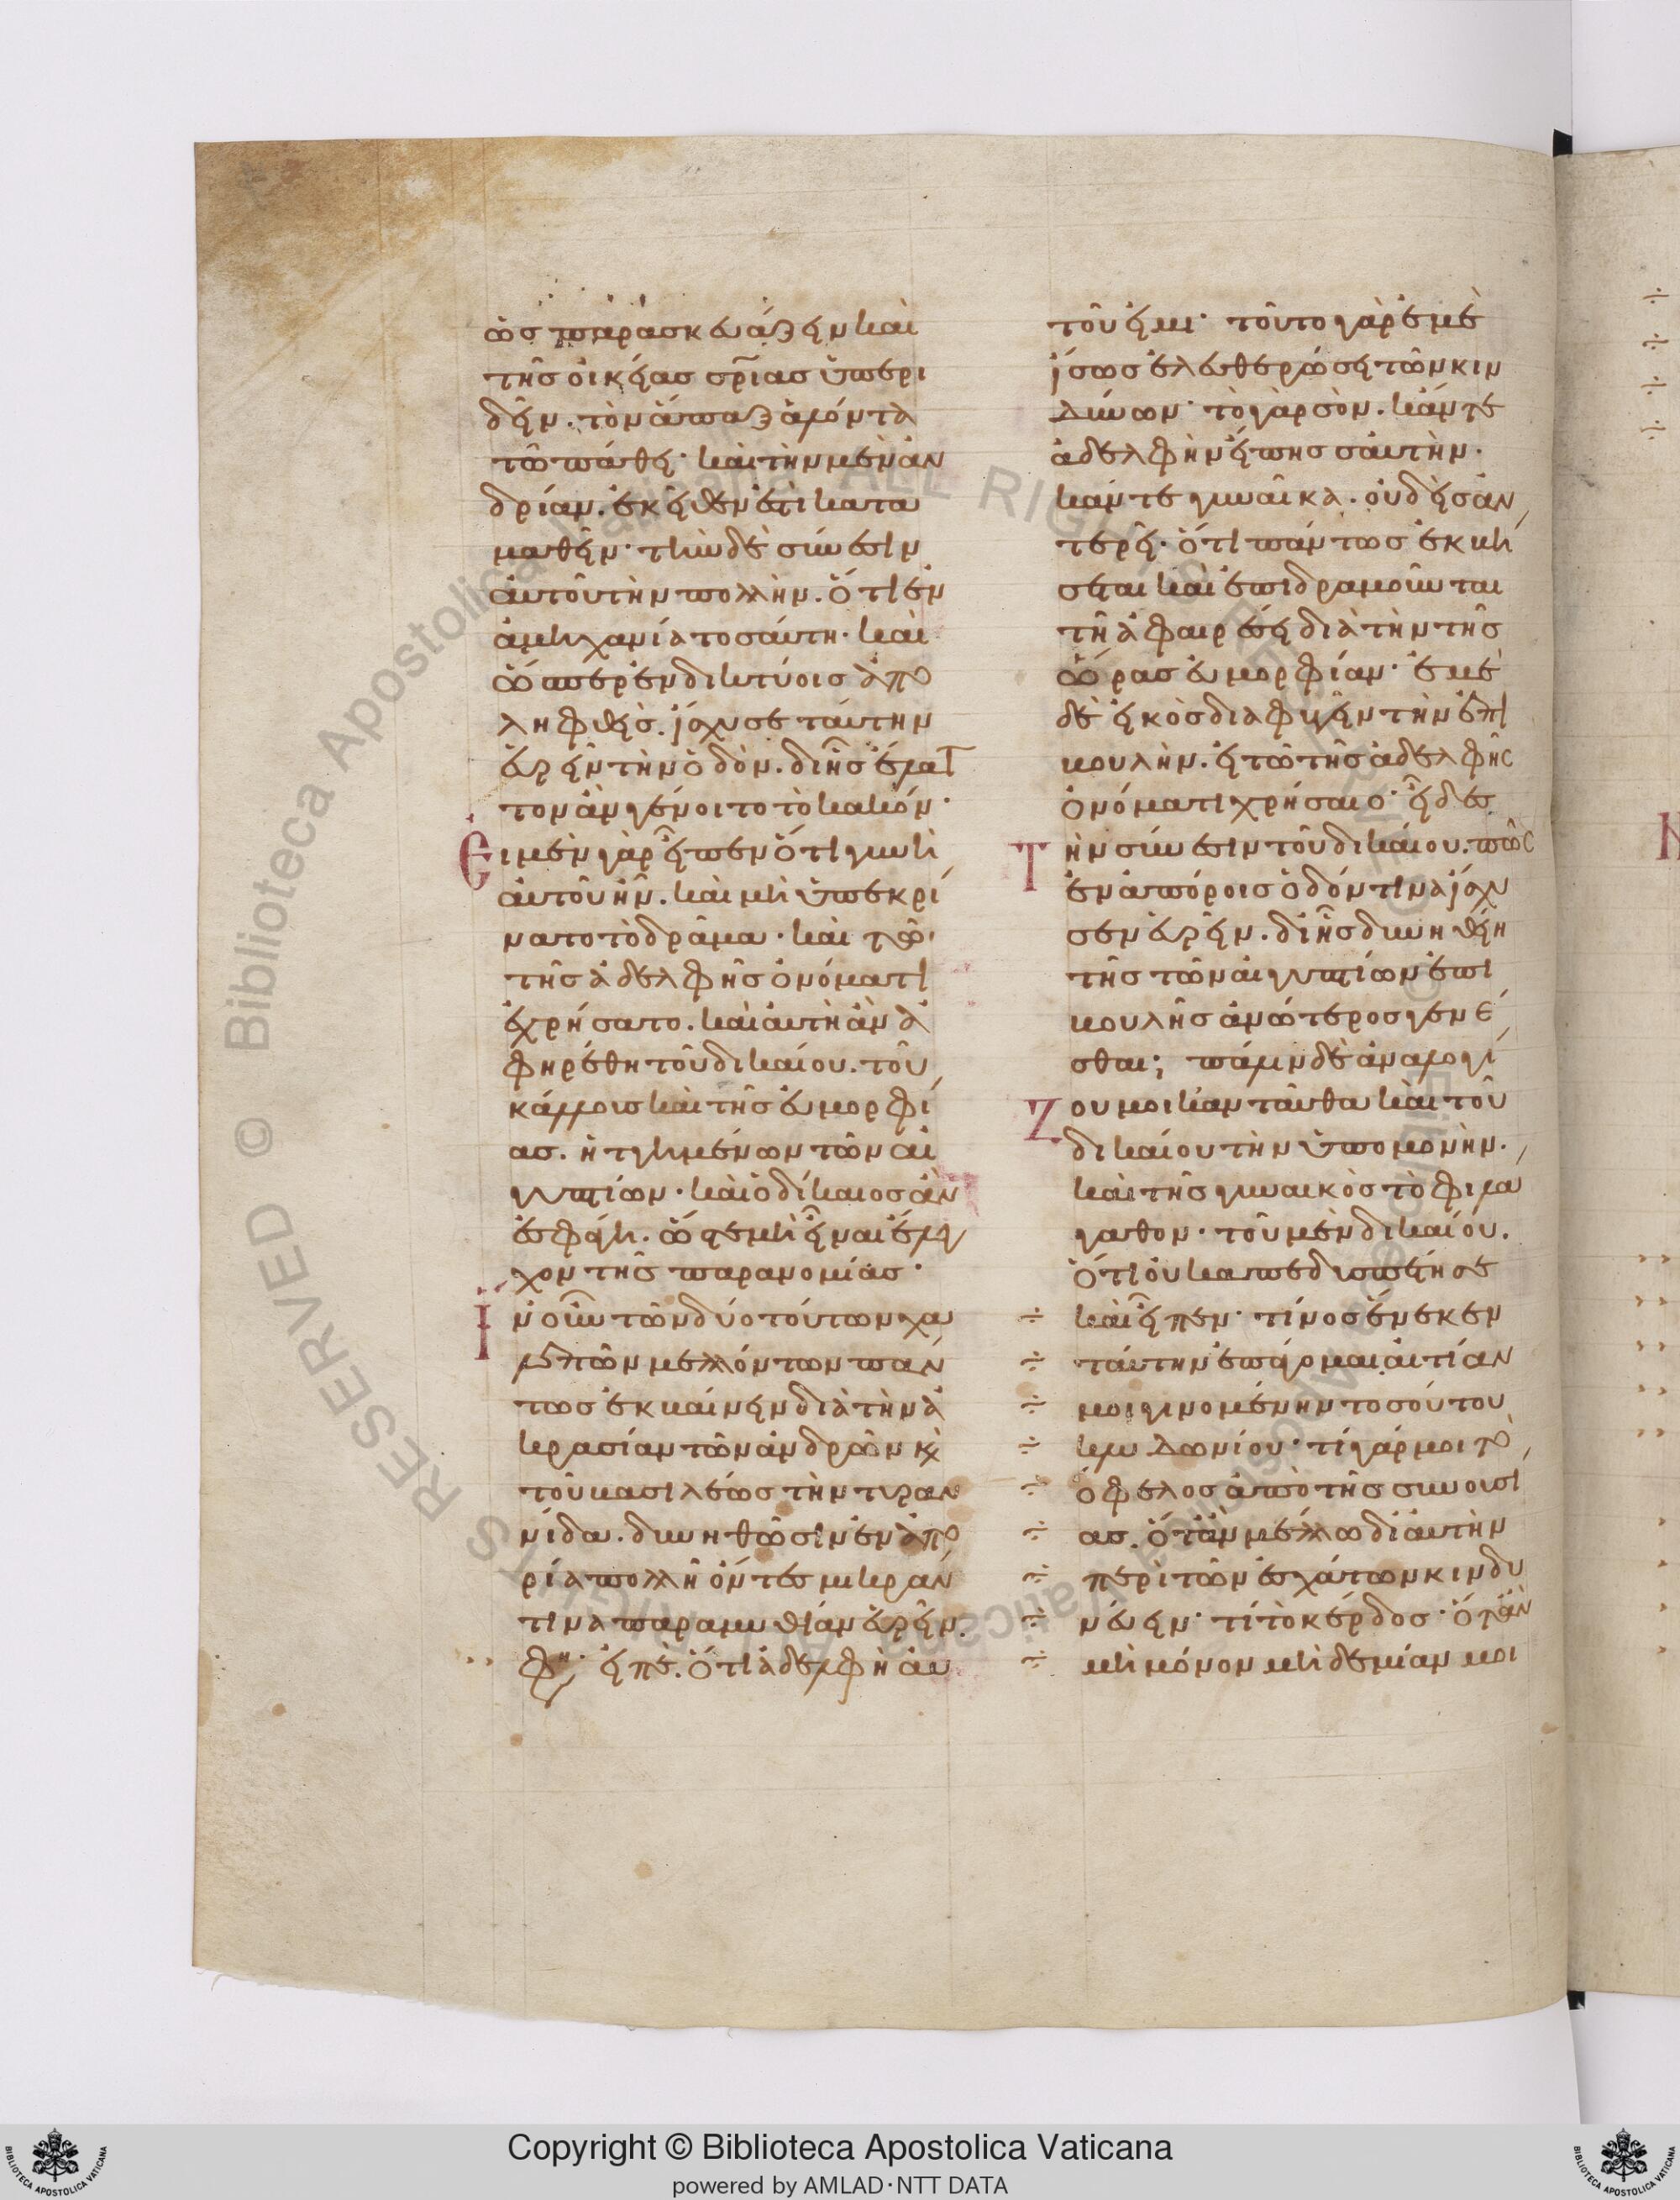 ὡς παρασκευάζειν καὶ
τῆς οἰκείας σρίας ὑπερι
δεῖν. τὸν ἅπαξ ἁλόντα
τῶ πάθει· καὶ τὴν μὲν ἀν
δρίαν. ἐκεῖθεν ἔτι κατα
μαθεῖν· τὴν δὲ σύνεσιν
αὐτοῦ τὴν πολλὴν. ὅτι ἐν
ἀμηχανία τοσαύτη· καὶ
ὥσπερ ἐν δικτύοις ἀπο
ληφθεὶς. ἴσχυσε ταύτην
εὑρεῖν τὴν ὁδὸν. δι ἧς ἔλατ
τον ἂν γένοιτο τὸ κακόν·
Ει μὲν γὰρ εἶπεν ὅτι γυνὴ
αὐτοῦ ἦν. καὶ μὴ ὑπεκρί
νατο τὸ δρᾶμα· καὶ τῶ
τῆς ἀδελφῆς ὀνόματι
ἐχρήσατο. καὶ αὐτὴ ἂν ἀ
φηρέθη τοῦ δικαίου. τοῦ
κάλλους καὶ τῆς εὐμορφί
ας. ἡττημένων τῶν αἰ
γυπτίων· καὶ ὁ δίκαιος ἂν
ἐσφάγη. ὥστε μὴ εἶναι ἔλεγ
χον τῆς παρανομίας·
Ἵν οὖν τῶν δύο τούτων χα
λεπῶν μελλόντων πάν
τως ἐκβαίνειν διὰ τὴν ἀ
κρασίαν τῶν ἀνδρῶν κὶ
τοῦ βασιλέως τὴν τυραν
νίδα. δυνηθῶσιν ἐν ἀπο
ρία πολλῆ ὄντες μικράν
τινα παραμυθίαν εὑρεῖν.
φη· εἰπὲ. ὅτι ἀδελφὴ αὐ
τοῦ εἰμι· τοῦτο γὰρ ἐμὲ
ἴσως ἐλευθερώσει τῶν κιν
δύνων· τὸ γὰρ σὸν. κἄν τε
ἀδελφὴν εἴπης σαυτὴν.
κἄν τε γυναῖκα. οὐδεὶς ἀν
τερεῖ. ὅτι πάντως ἐκ μὴ
σεται καὶ ἐπιδραμοῦνται
τῆ ἀφαιρέσει διὰ τὴν τῆς
ὥρας εὐμορφίαν· ἐμὲ
δὲ εἰκὸς διαφυγεῖν τὴν ἐπι
βουλὴν. εἰ τῶ τῆς ἀδελφῆς
ὀνόματι χρήσαιο· εἶδες
Την σύνεσιν τοῦ δικαίου. πῶς
ἐν ἀπόροις ὁδόν τινα ἴσχυ
σεν εὑρεῖν. δι ἧς δυνηθείη
τῆς τῶν αἰγυπτίων ἐπι
βουλῆς ἀνώτερος γενέ
σθαι; πάλιν δὲ ἀναλογί
Ζου μοι κἀνταῦθα καὶ τοῦ
δικαίου τὴν ὑπομονὴν.
καὶ τῆς γυναικὸς τὸ φιλά
γαθον· τοῦ μὲν δικαίου.
ὅτι οὐκ ἀπεδυσπέτησε
καὶ εἶπεν· τίνος ἕνεκεν
ταύτην ἐπάγομαι αἰτίαν
μοι γινομένην τοσούτου
κλυδωνίου· τί γάρ μοι τὸ
ὄφελος ἀπὸ τῆς συνουσί
ας. ὅταν μέλλω δι αὐτὴν
περὶ τῶν ἐσχάτων κινδυ
νεύειν· τί τὸ κέρδος· ὅταν
μὴ μόνον μηδεμίαν μοι